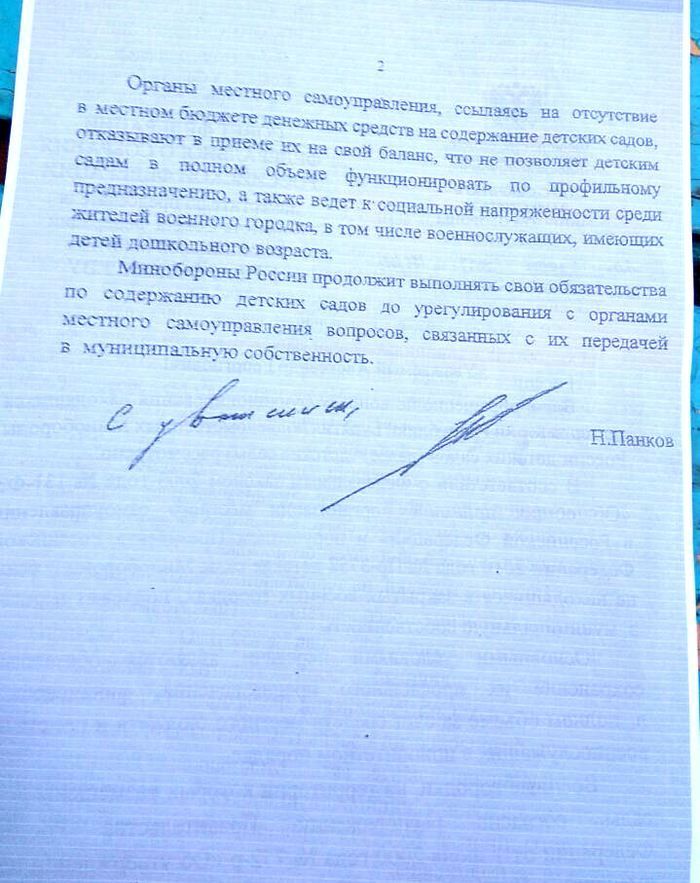 2
Органы местного самоуправления, ссылаясь на отсутствие
в местном бюджете денежных средств на содержание детских садов,
отказывают в приеме их на свой баланс, что не позволяет детским
садам в полном объеме функционировать по профильному
предназначению, а также ведет к социальной напряженности среди
жителей военного городка, в том числе военнослужащих, имеющих
детей дошкольного возраста.
Минобороны России продолжит выполнять свои обязательства
по содержанию детских садов до урегулирования с органами
местного самоуправления вопросов, связанных с их передачей
в муниципальную собственность.
С уважением,
Н.Панков